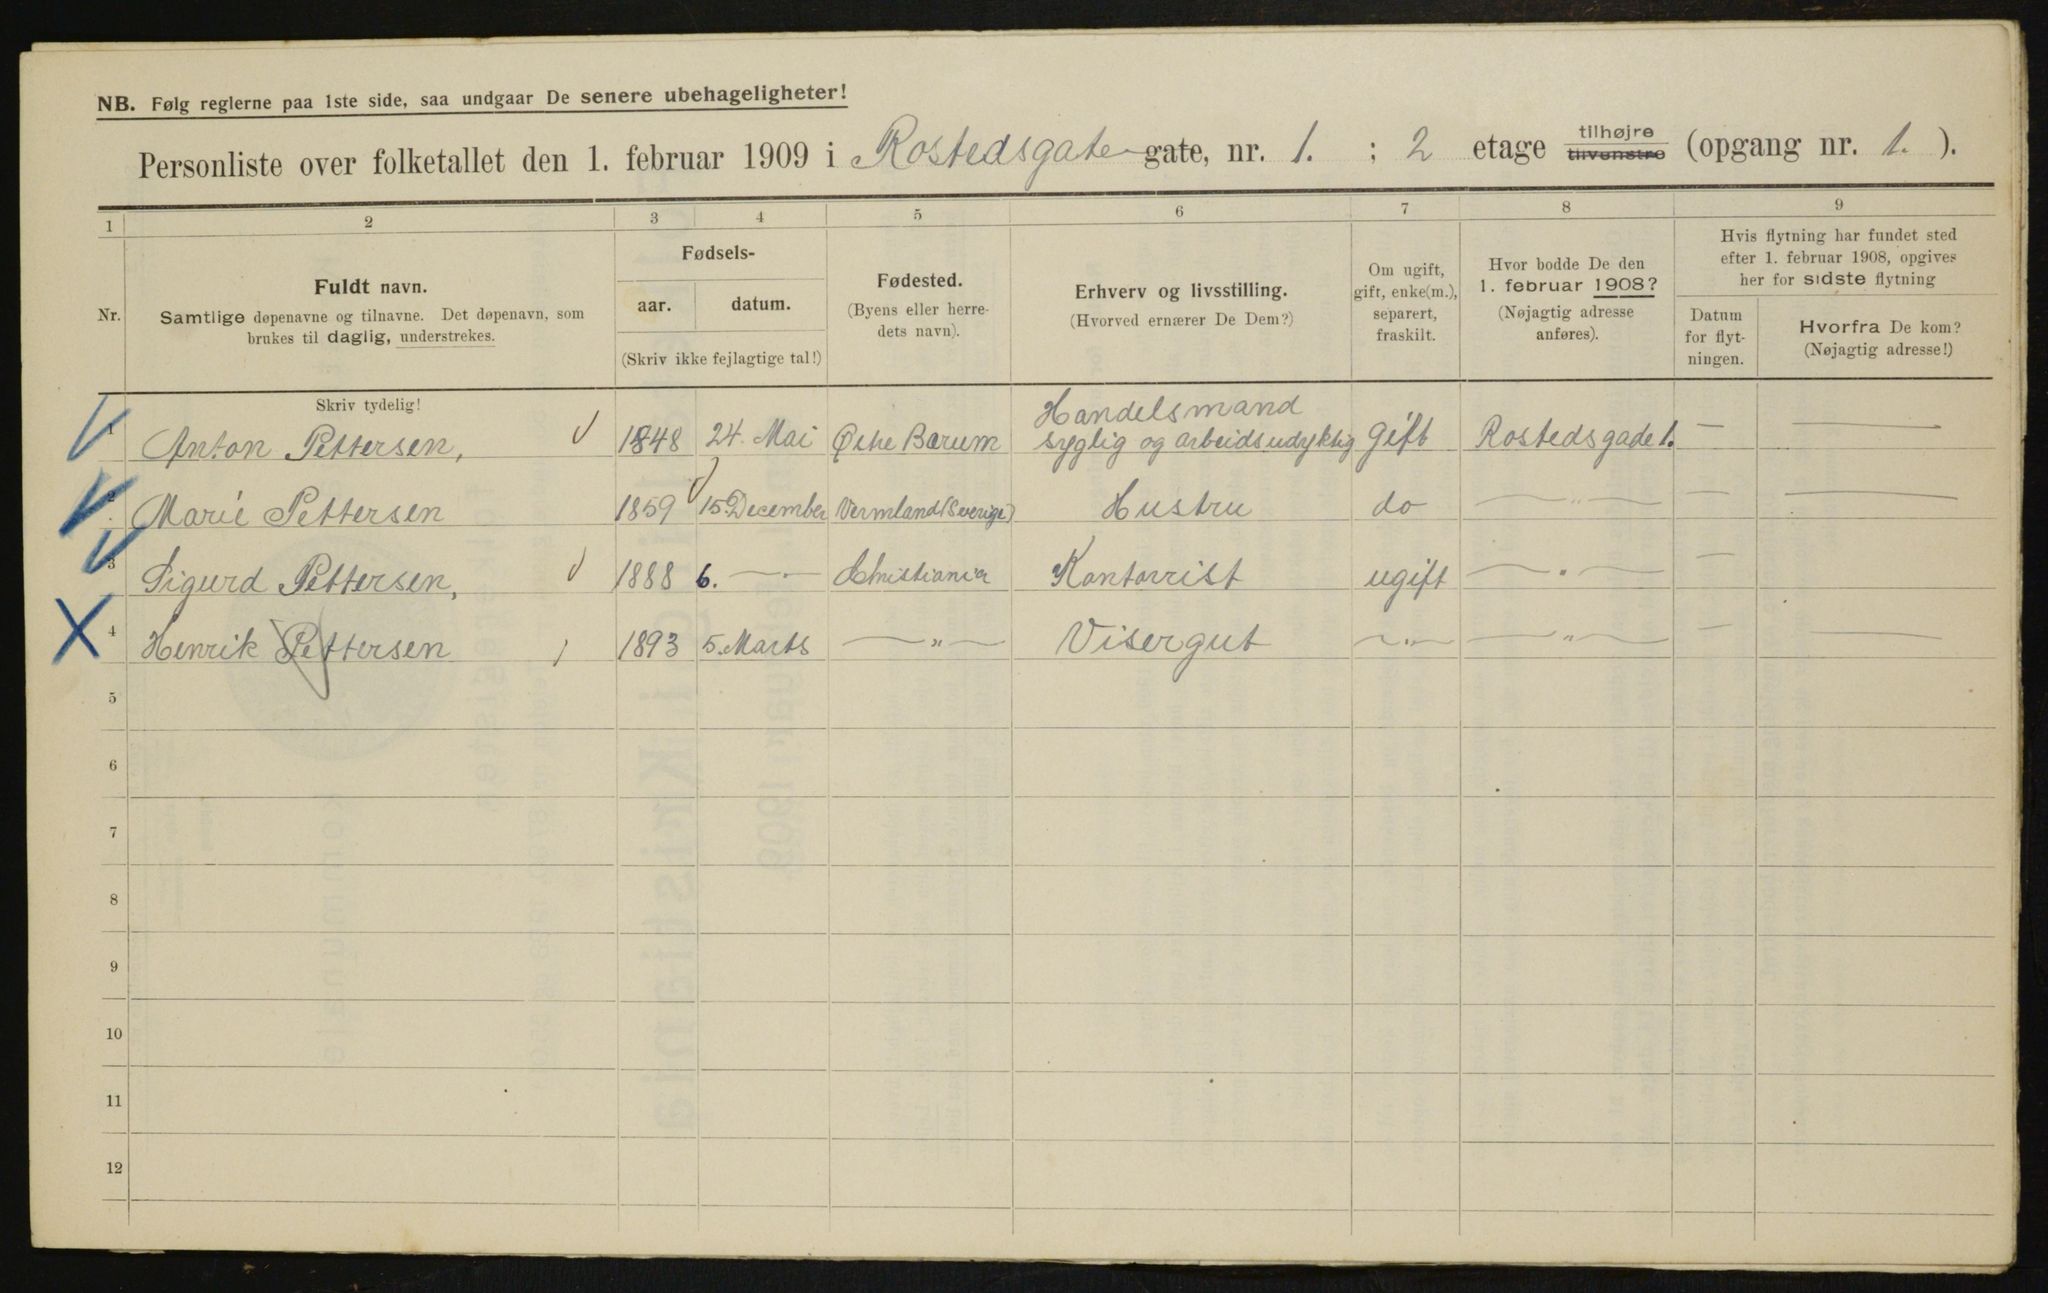 NB. Følg reglerne paa 1ste side, saa undgaar De senere ubehageligheter!
Personliste over folketallet den 1. februar 1909 i Rostedsgate gate, nr. 1. ; 2 etage tilhøjre tilvenstre (opgang nr. 1. ).
1 2 3 4 5 6 7 8 9
Nr.
Fuldt navn.
Samtlige døpenavne og tilnavne. Det døpenavn, som
brukes til daglig, understrekes.
Fødsels-
aar. datum.
(Skriv ikke fejlagtige tal!)
Fødested.
(Byens eller herre-
dets navn).
Erhverv og livsstilling.
(Hvorved ernærer De Dem?)
Om ugift,
gift, enke(m.),
separert,
fraskilt.
Hvor bodde De den
1. februar 1908?
(Nøjagtig adresse
anføres).
Hvis flytning har fundet sted
efter 1. februar 1908, opgives
her for sidste flytning
Datum
for flyt-
ningen.
Hvorfra De kom?
(Nøjagtig adresse!)
Skriv tydelig!
Handelsmand
1 Anton Pettersen, 1848 24. Mai Østre Bærum syglig og arbeidsudyktig Gift Rostedsgade 1. — —
2 Marie Pettersen 1859 15 December Vermland (Sverige) Hustru do —"— — —
3 Sigurd Pettersen, 1888 6. —"— Christiania Kontorrist ugift —"— — —
4 Henrik Pettersen 1893 5. Marts —"— Visergut —"— —"— — —
5
6
7
8
9
10
11
12